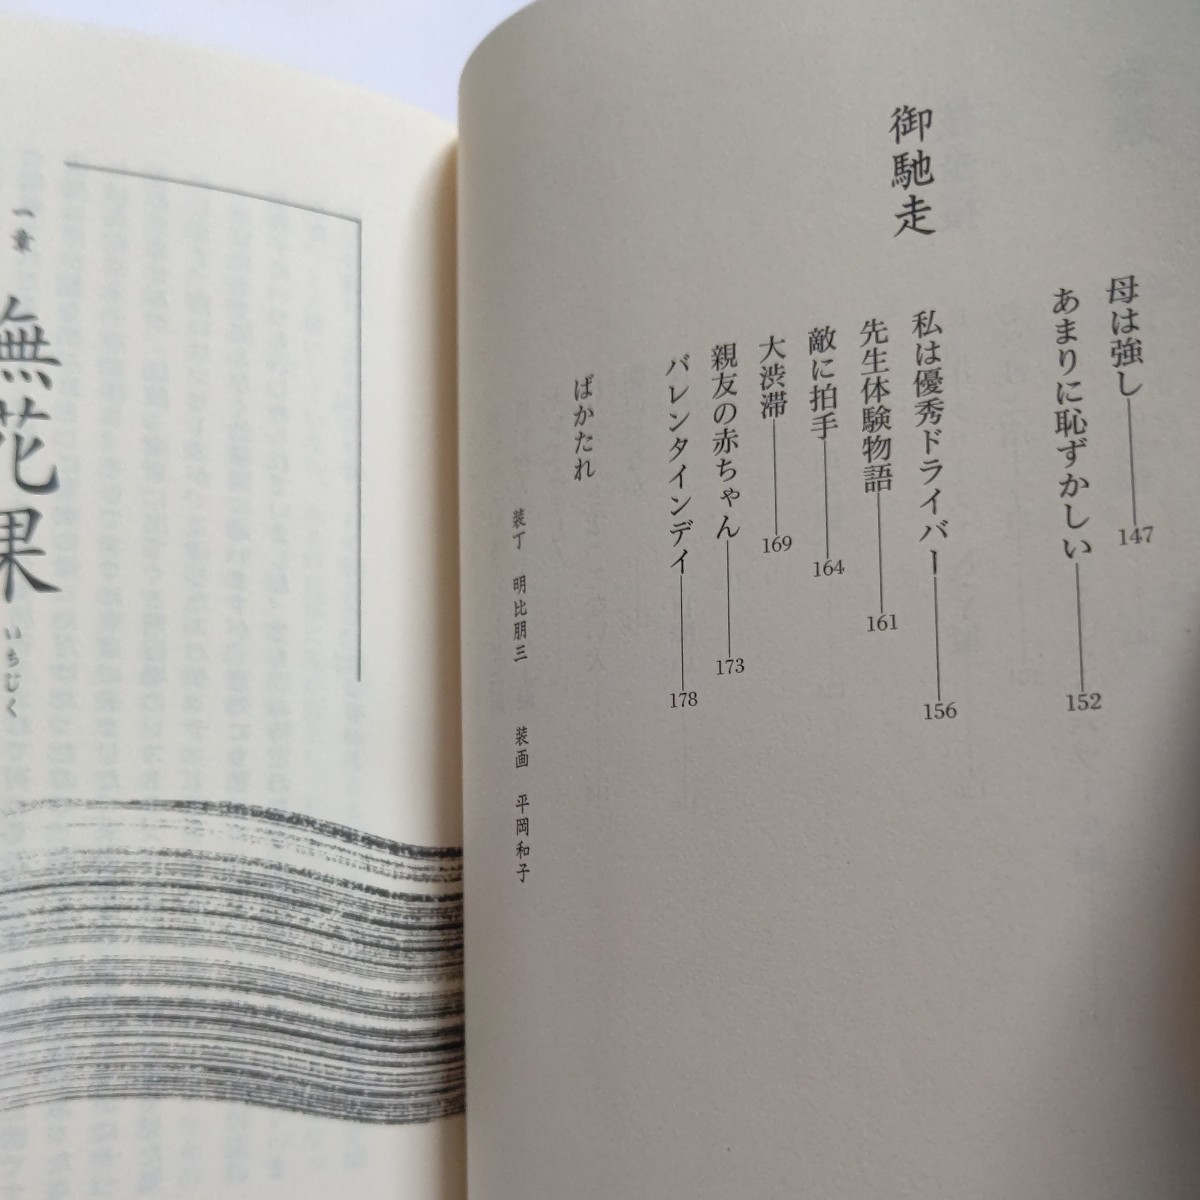 母は強し 147
あまりに恥ずかしい 152
御馳走
私は優秀ドライバー 156
先生体験物語 161
敵に拍手 164
大渋滞 169
親友の赤ちゃん 173
バレンタインデイ 178
ばかたれ
装丁 明比朋三 装画 平岡和子
一章
無花果
いちじく